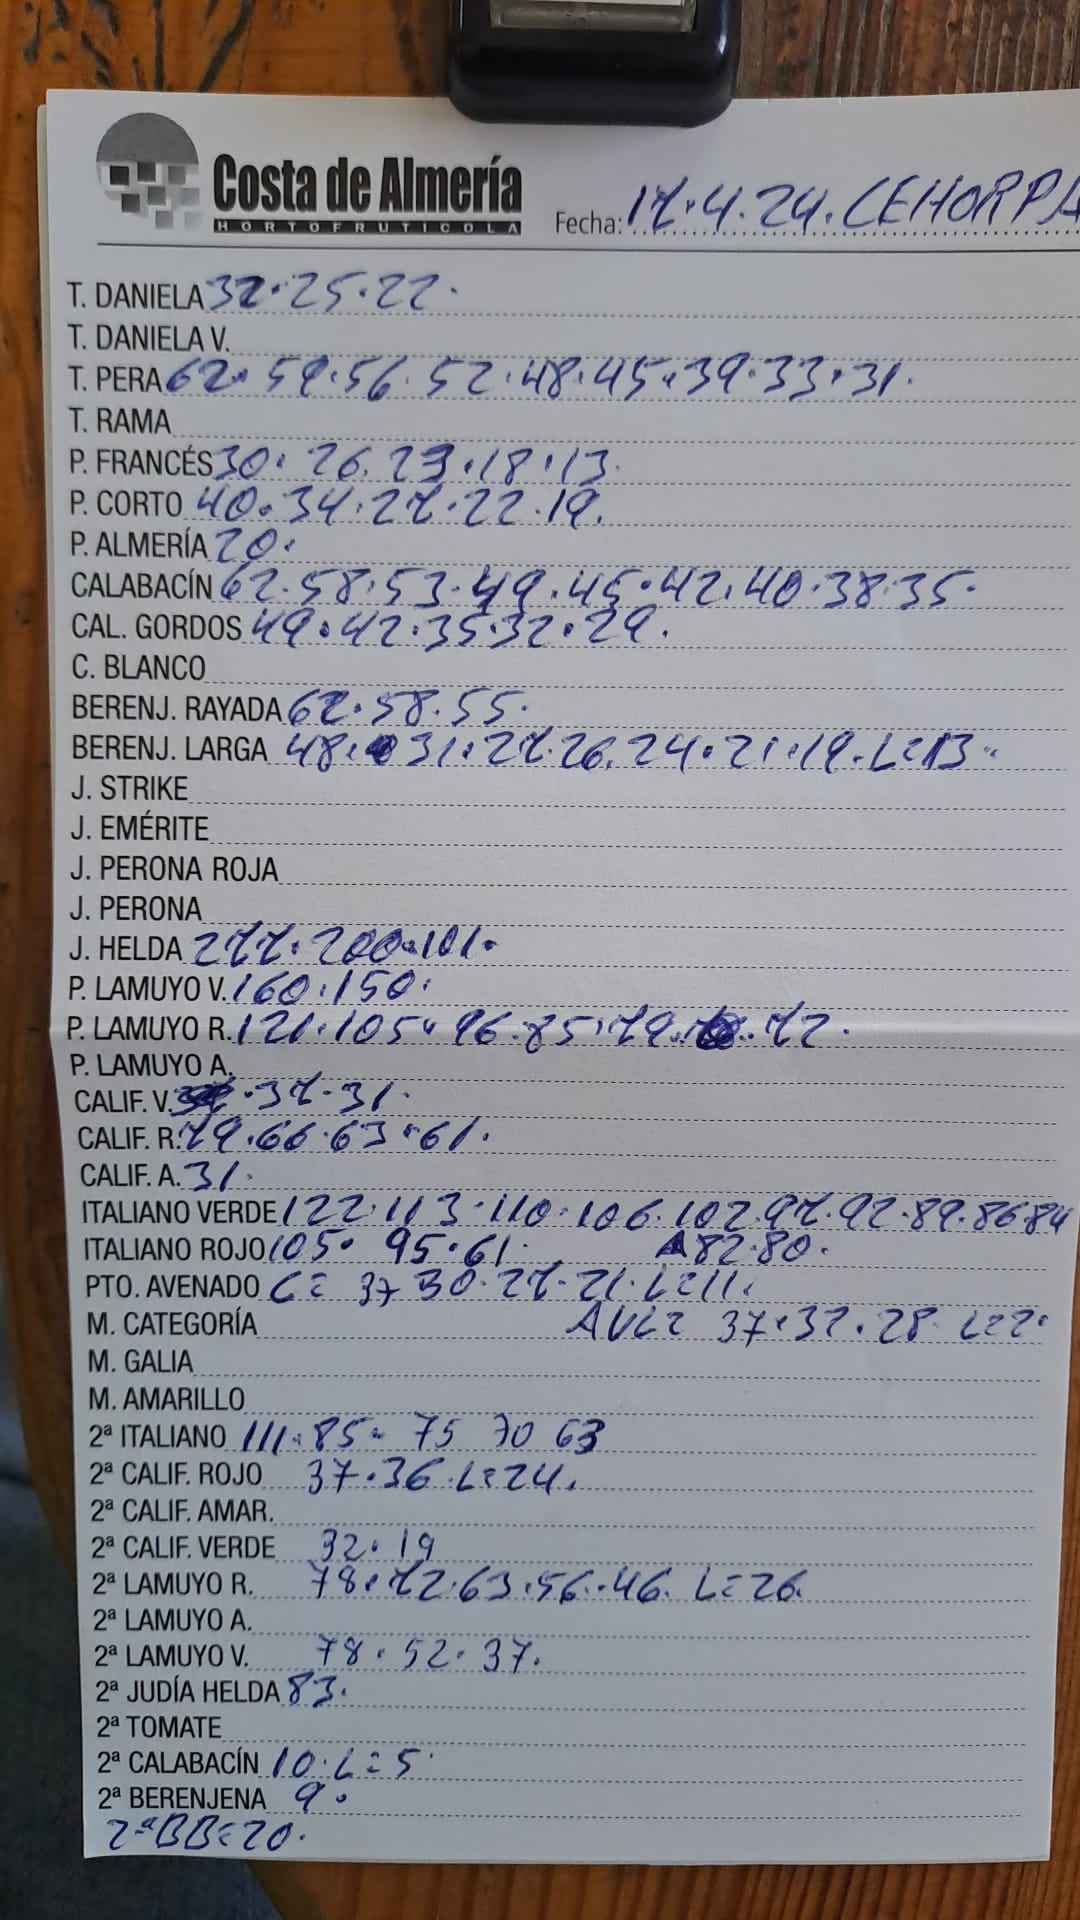 Costa de Almería
HORTOFRUTICOLA
Fecha: 17.4.24. CEHORPA
T. DANIELA 32.25.22.
T. DANIELA V.
T. PERA 62.59.56.52.48.45.39.33.31.
T. RAMA
P. FRANCÉS 30.26.23.18.13.
P. CORTO 40.34.27.22.19.
P. ALMERÍA 20.
CALABACÍN 62.58.53.49.45.42.40.38.35.
CAL. GORDOS 49.42.35.32.29.
C. BLANCO
BERENJ. RAYADA 62.58.55.
BERENJ. LARGA 48.31.27.26.24.21.19.L=13.
J. STRIKE
J. EMÉRITE
J. PERONA ROJA
J. PERONA
J. HELDA 277.200.101.
P. LAMUYO V. 160.150.
P. LAMUYO R. 121.105.96.85.79.72.
P. LAMUYO A.
CALIF. V. .37.31.
CALIF. R. 79.66.63.61.
CALIF. A. 31.
ITALIANO VERDE 122.113.110.106.102.97.92.89.86 84
ITALIANO ROJO 105.95.61. 82.80.
PTO. AVENADO C= 37 30.27.21.L=11.
M. CATEGORÍA AVL= 37.32.28 L=2.
M. GALIA
M. AMARILLO
2ª ITALIANO 111.85.75 70 63
2ª CALIF. ROJO 37.36.L=24.
2ª CALIF. AMAR.
2ª CALIF. VERDE 32.19
2ª LAMUYO R. 78.72.63.56.46. L=26.
2ª LAMUYO A.
2ª LAMUYO V. 78.52.37.
2ª JUDÍA HELDA 83.
2ª TOMATE
2ª CALABACÍN 10.L=5.
2ª BERENJENA 9.
2ªBB=20.